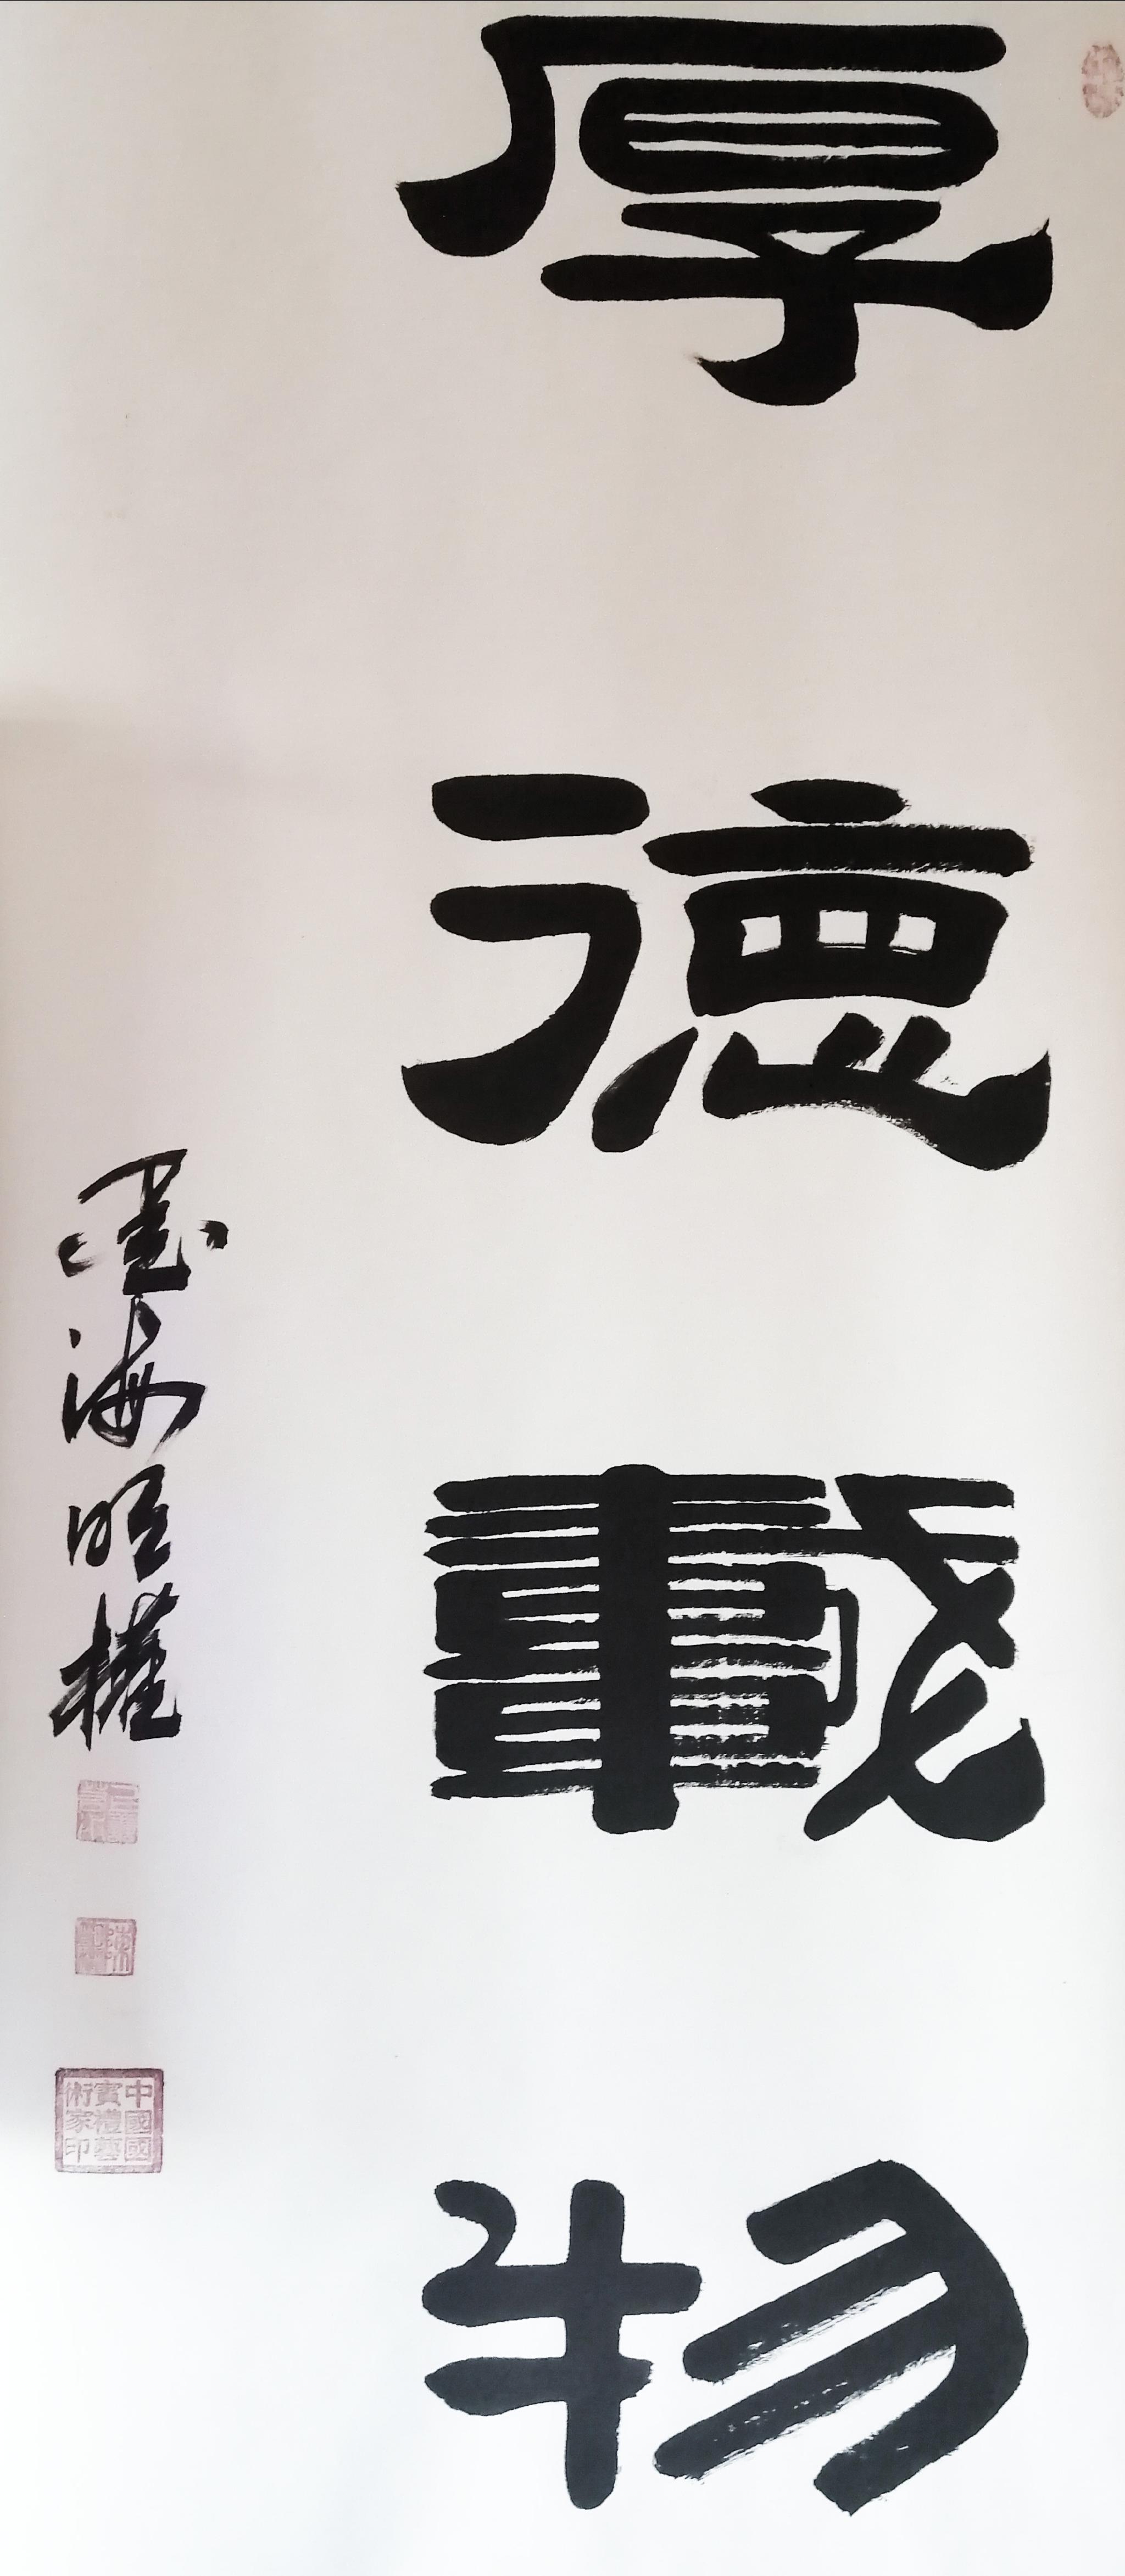 厚德載物
墨海明權
陳
中國國
賓禮藝
術家印